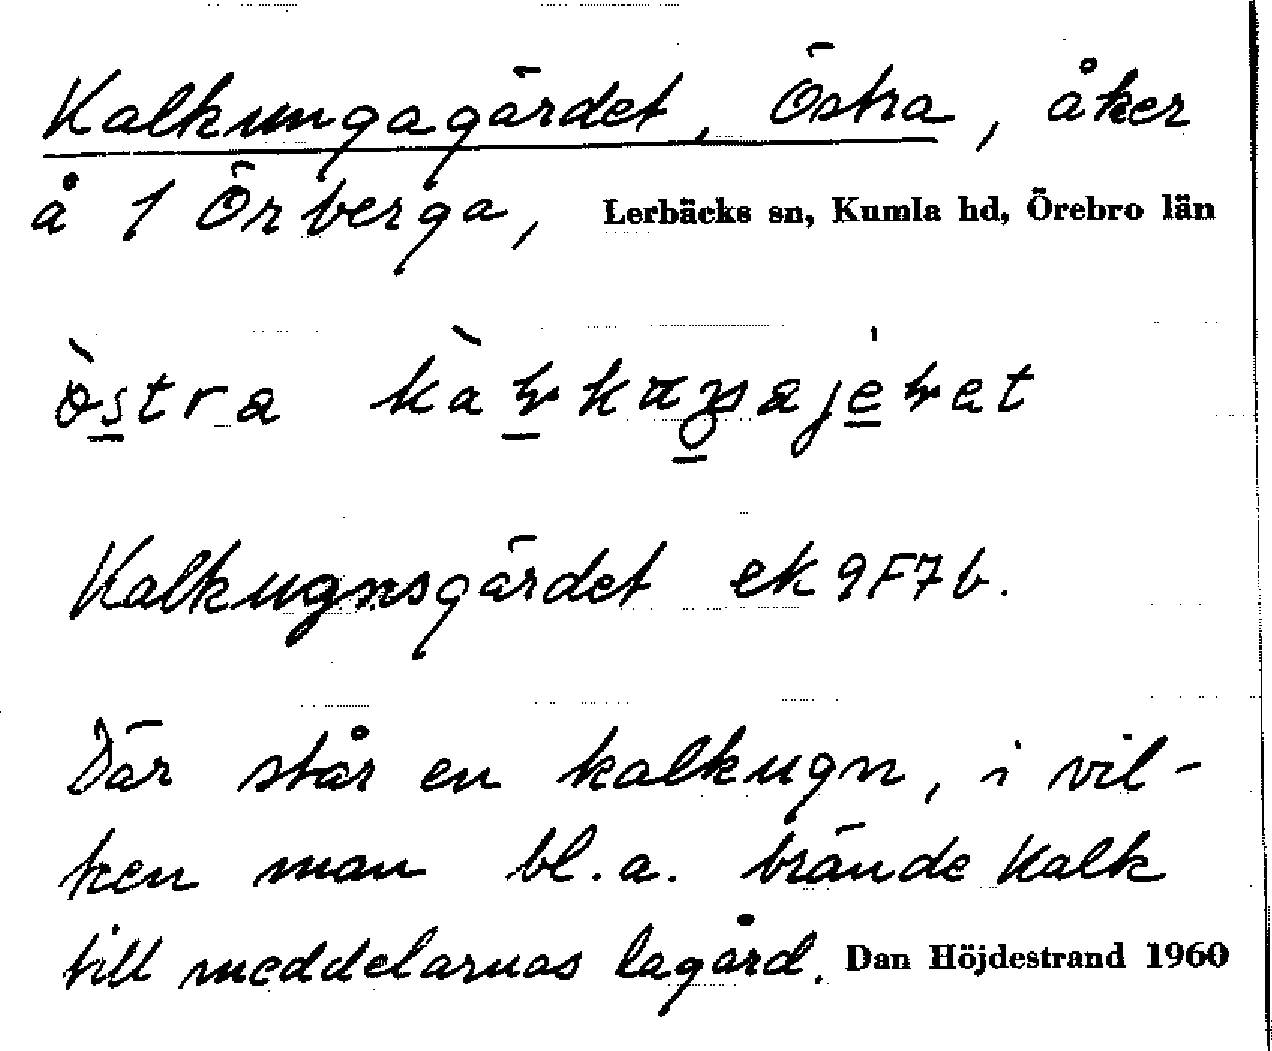 Kalkungagärdet, Östra, åker
å 1 Örberga, Lerbäcks sn, Kumla hd, Örebro län
Kalkugnsgärdet ek 9F7b.
Där står en kalkugn, i vil-
ken man bl.a. brände kalk
till meddelarnas lagård. Dan Höjdestrand 1960